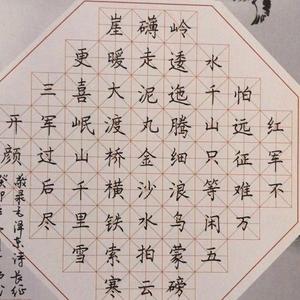 红军不
怕远征难万
水千山只等闲五
岭逶迤腾细浪乌蒙磅
礴走泥丸金沙水拍云
崖暖大渡桥横铁索寒
更喜岷山千里雪
三军过后尽
开颜
敬录毛泽东诗长征
癸卯